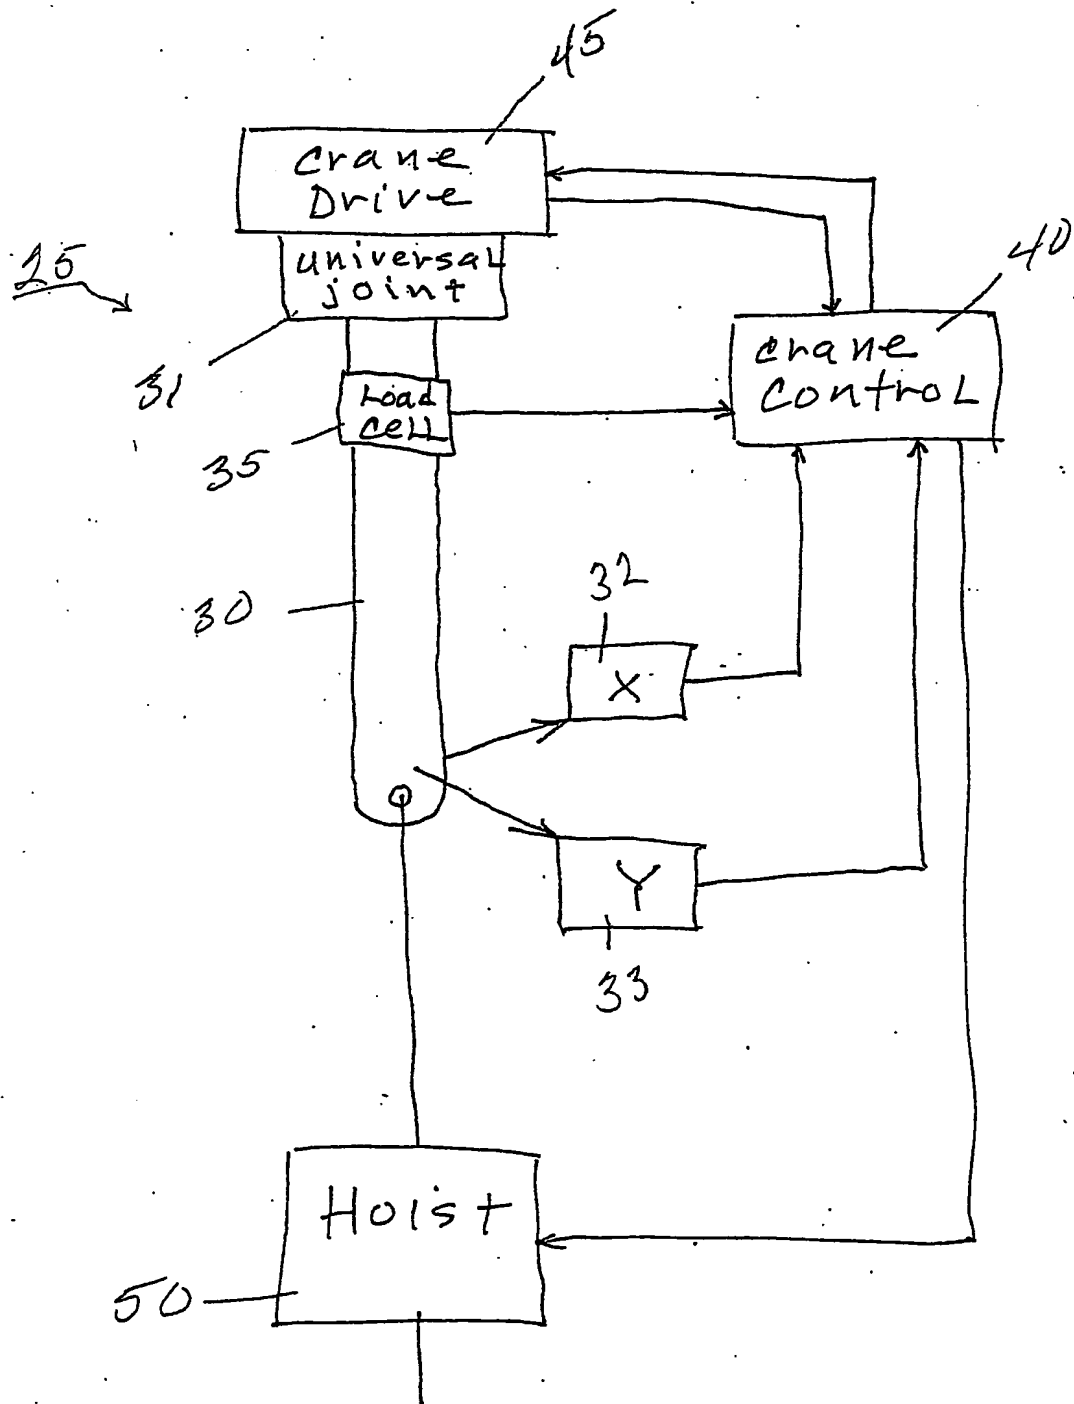 45
Crane
Drive
25
universal
joint
40
crane
control
31
Load
Cell
35
32
30
X
Y
33
Hoist
50